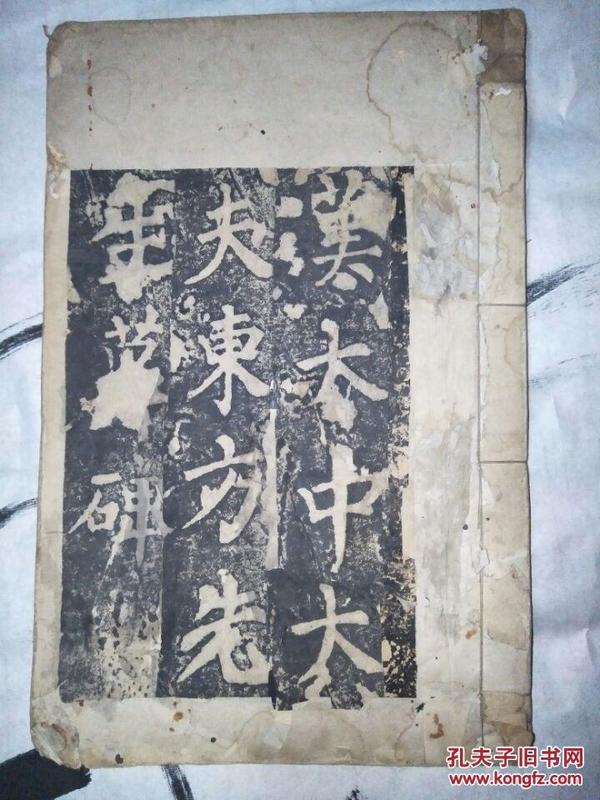 漢太中大
夫東方先
生墓碑
孔夫子旧书网
www.kongfz.com